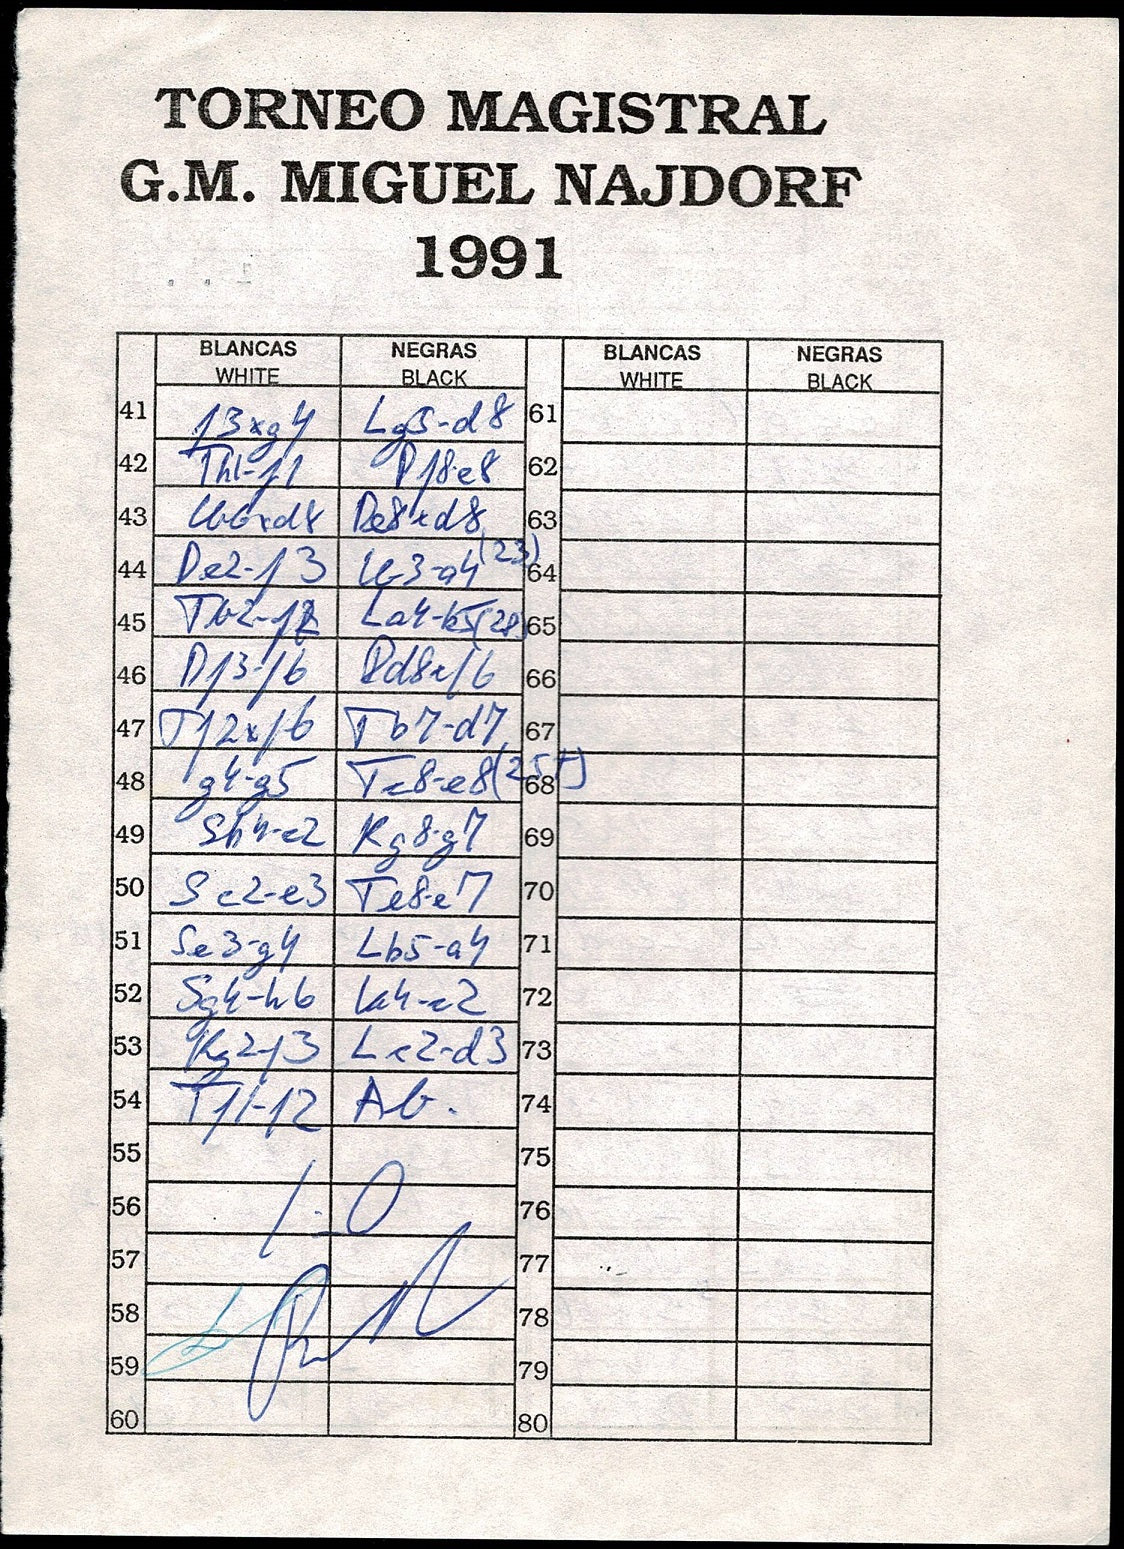 TORNEO MAGISTRAL
G.M. MIGUEL NAJDORF
1991
BLANCAS NEGRAS BLANCAS NEGRAS
WHITE BLACK WHITE BLACK
41 f3xg4 Lg5-d8 61
42 Th1-f1 Df8-e8 62
43 Lb6xd8 De8xd8 63
44 De2-f3 Lb3-a4 (23) 64
45 Tb2-f2 La4-b5 (28) 65
46 Df3-f6 Dd8xf6 66
47 Tf2xf6 Tb7-d7 67
48 g4-g5 Tc8-e8 (25+) 68
49 Sh4-c2 Kg8-g7 69
50 Sc2-e3 Te8-e7 70
51 Se3-g4 Lb5-a4 71
52 Sg4-h6 La4-c2 72
53 Kg2-f3 Lc2-d3 73
54 Tf1-f2 Ab. 74
55 75
56 1-0 76
57 77
58 78
59 79
60 80